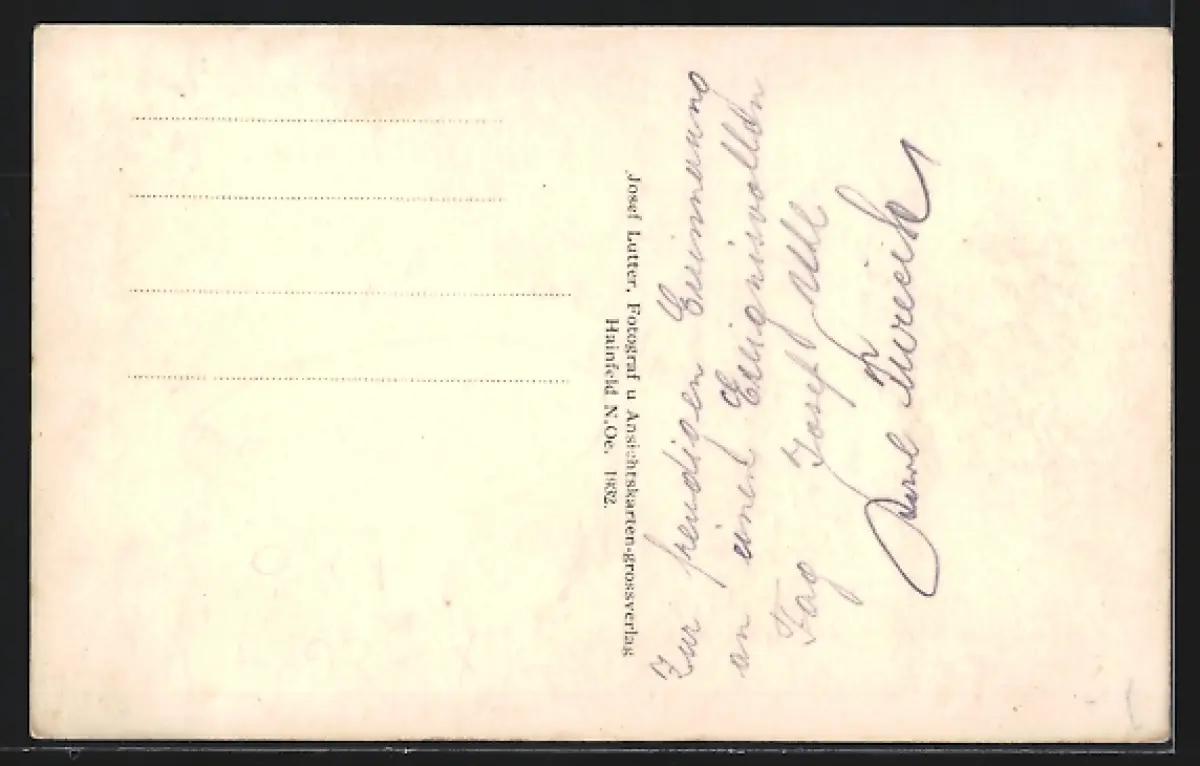 Josef Lutter, Fotograf u Ansichtskarten-grossverlag
Hainfeld N.Oe. 1932.
Zur freudigen Erinnerung
an einen Ereignisvollen
Tag Josef